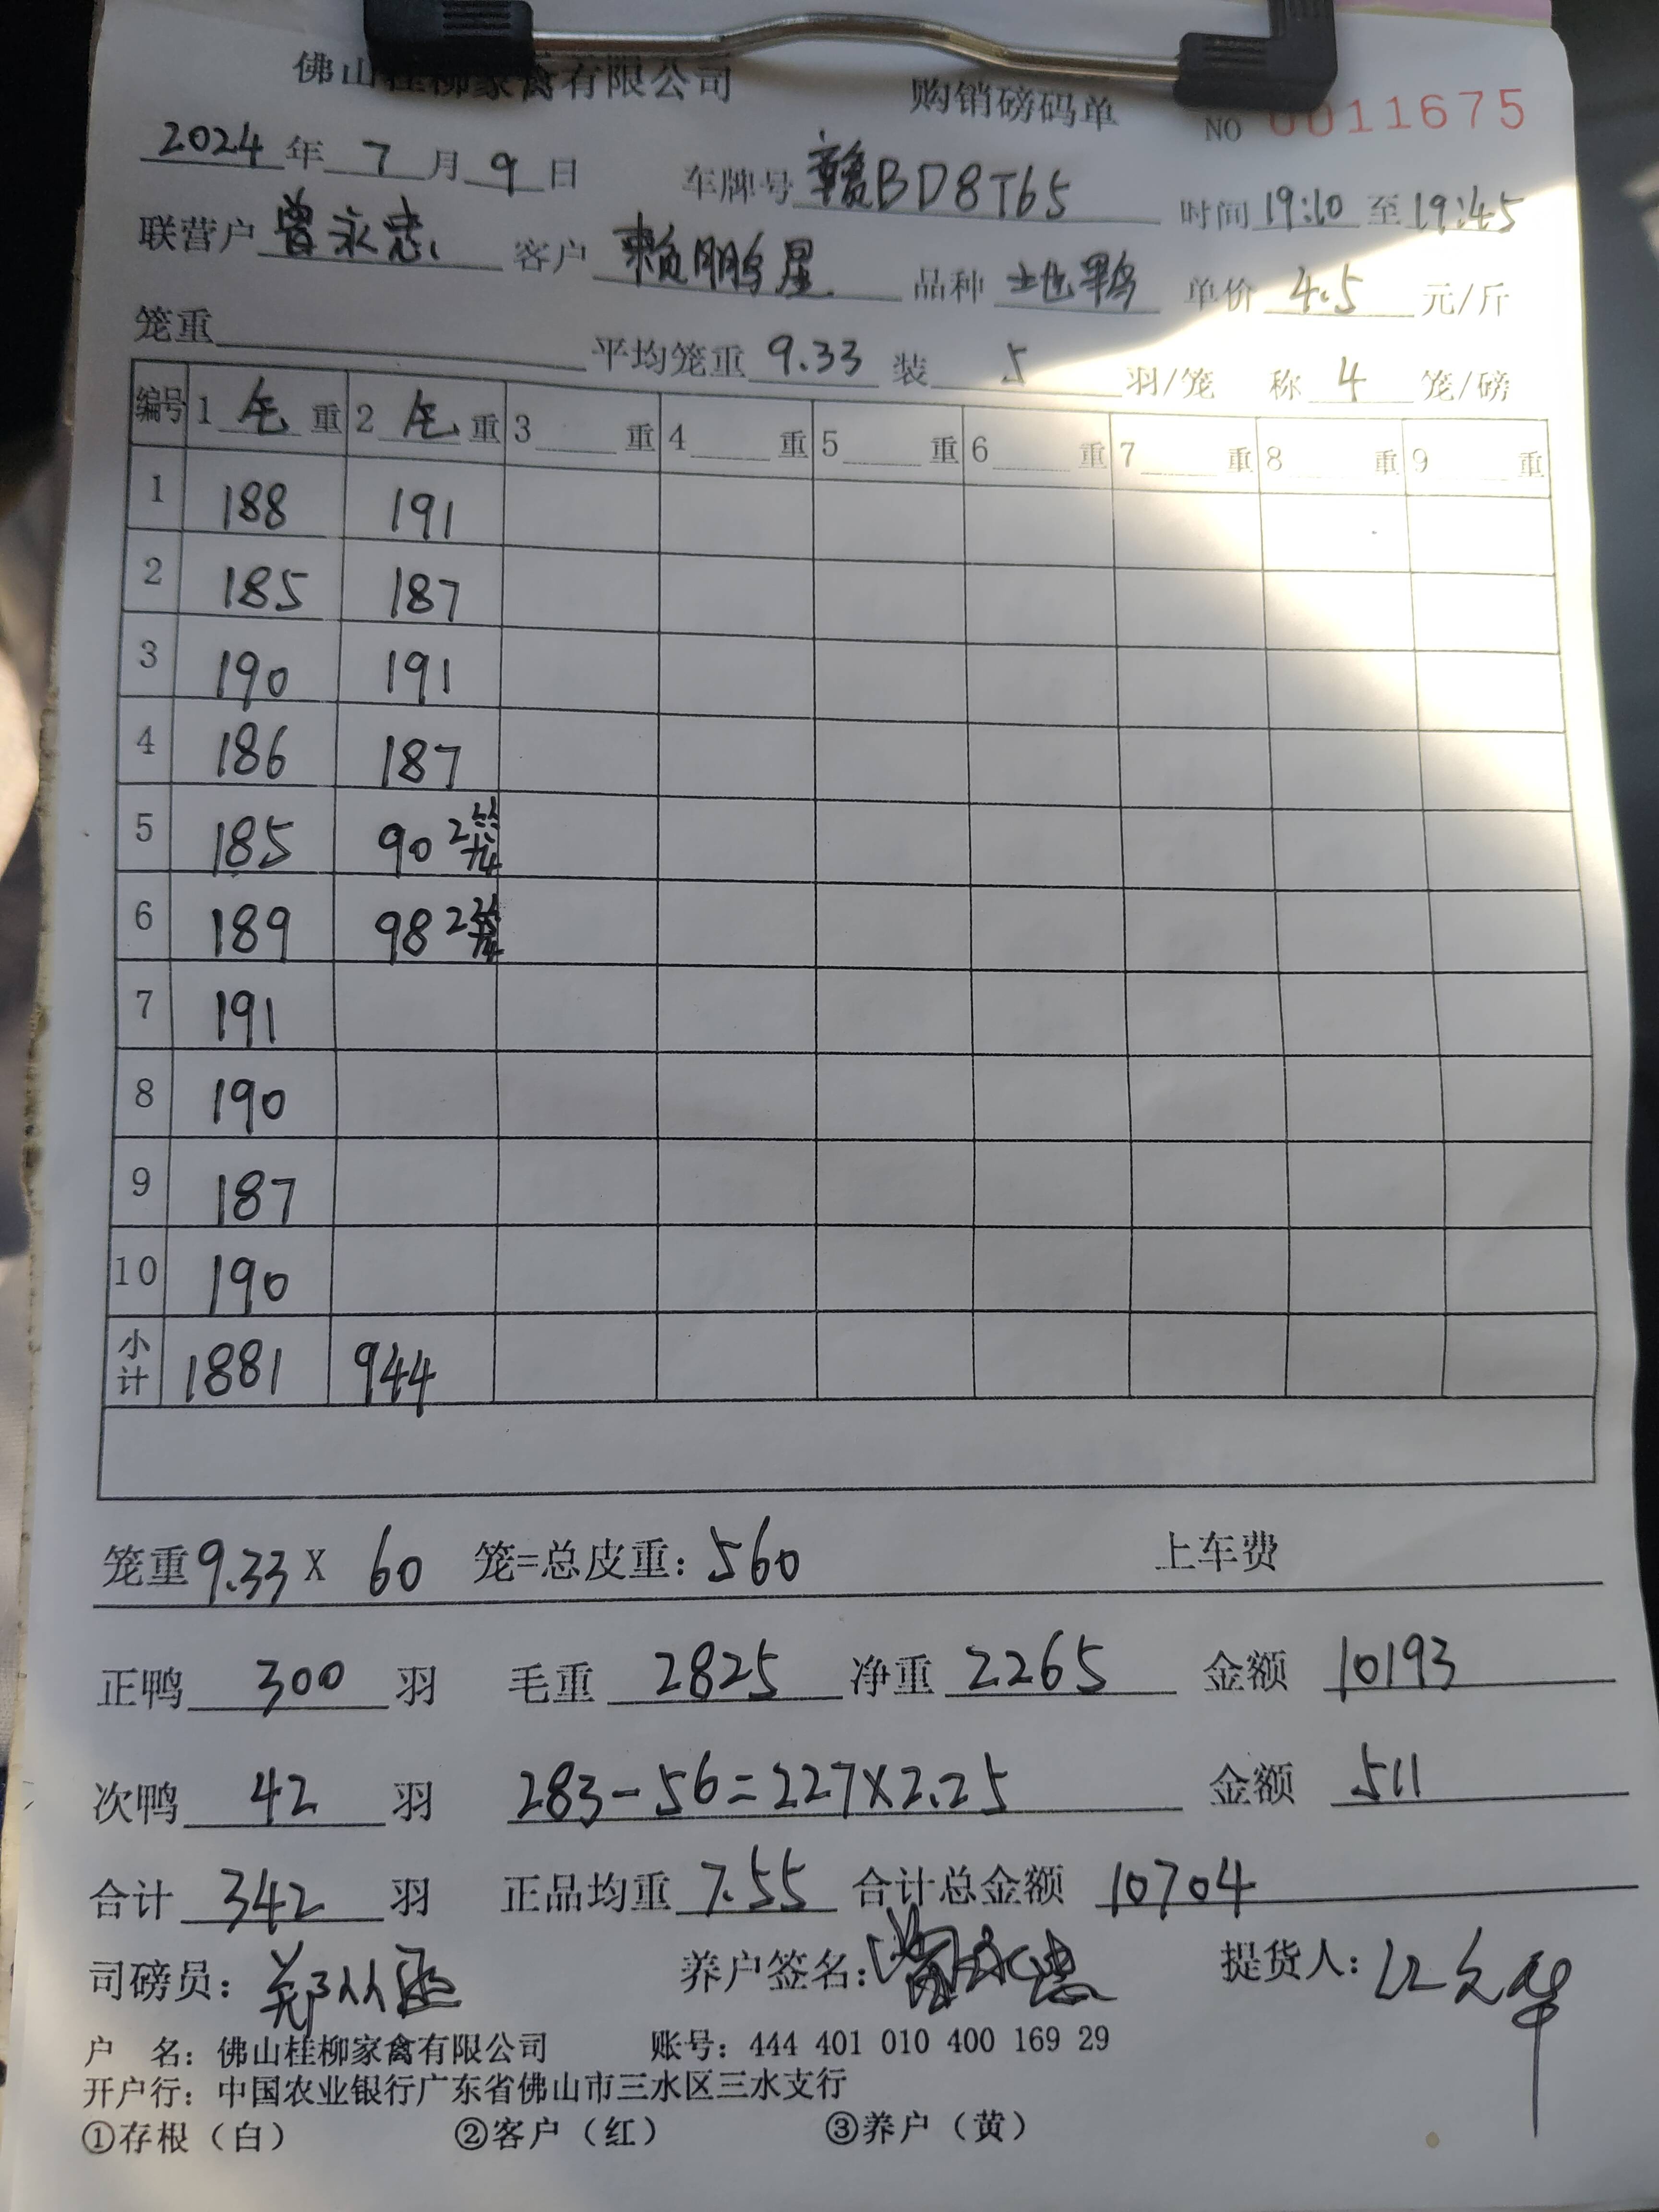 佛山桂柳家禽有限公司 购销磅码单 NO 0011675
2024年7月9日 车牌号 赣BD8T65 时间 19:10 至 19:45
联营户 曾永忠 客户 赖鹏星 品种 土也鸭 单价 4.5 元/斤
笼重 平均笼重 9.33 装 5 羽/笼 称 4 笼/磅
编号 1 毛 重 2 毛 重 3 重 4 重 5 重 6 重 7 重 8 重 9 重
1 188 191
2 185 187
3 190 191
4 186 187
5 185 90 2笼
6 189 98 2笼
7 191
8 190
9 187
10 190
小计 1881 944
笼重 9.33 X 60 笼=总皮重: 560 上车费
正鸭 300 羽 毛重 2825 净重 2265 金额 10193
次鸭 42 羽 283-56=227X2.25 金额 511
合计 342 羽 正品均重 7.55 合计总金额 10704
司磅员: 郑从 养户签名: 曾永忠 提货人:
户 名: 佛山桂柳家禽有限公司 账号: 444 401 010 400 169 29
开户行: 中国农业银行广东省佛山市三水区三水支行
①存根（白） ②客户（红） ③养户（黄）